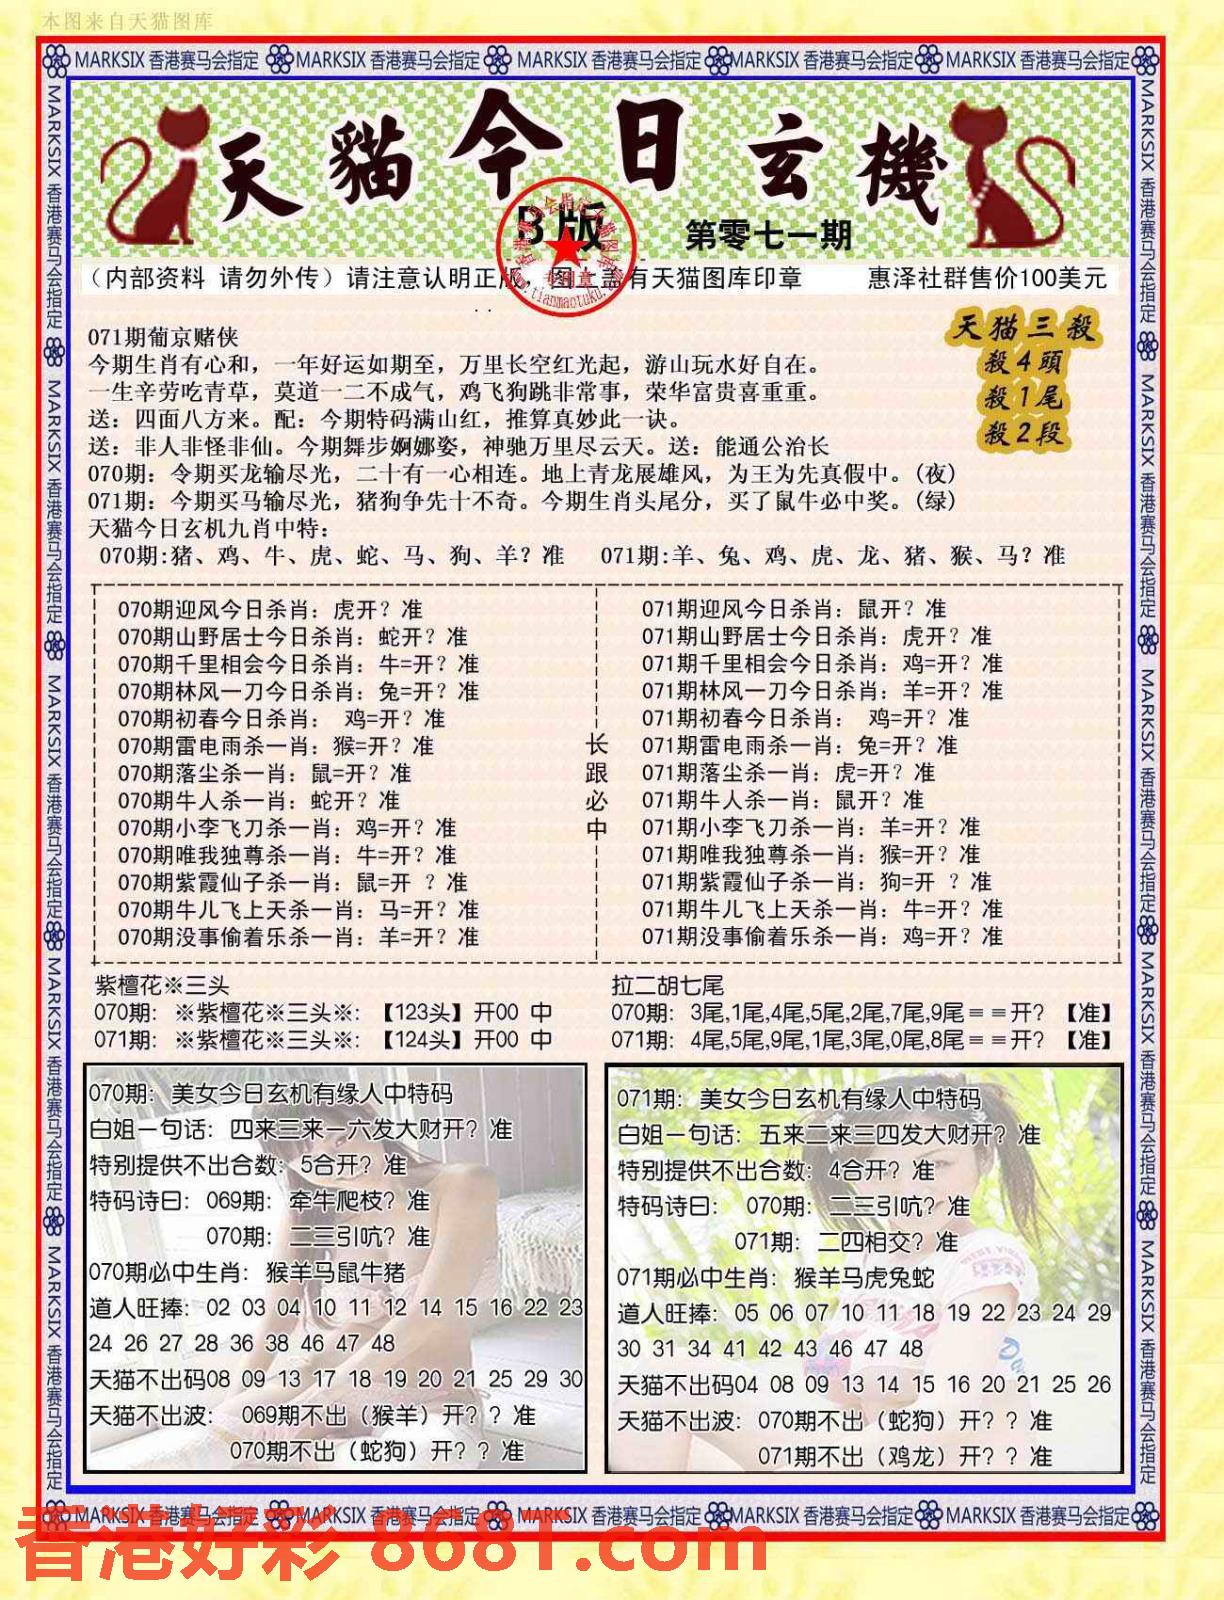 本图来自天猫图库
MARKSIX 香港赛马会指定 MARKSIX 香港赛马会指定 MARKSIX 香港赛马会指定 MARKSIX 香港赛马会指定 MARKSIX 香港赛马会指定
天貓今日玄機
B版
第零七一期
(内部资料 请勿外传)请注意认明正版,图上盖有天猫图库印章 惠泽社群售价100美元
www.tianmaotuku.com
天猫三殺
殺4頭
殺1尾
殺2段
071期葡京赌侠
今期生肖有心和,一年好运如期至,万里长空红光起,游山玩水好自在。
一生辛劳吃青草,莫道一二不成气,鸡飞狗跳非常事,荣华富贵喜重重。
送:四面八方来。配:今期特码满山红,推算真妙此一诀。
送:非人非怪非仙。今期舞步婀娜姿,神驰万里尽云天。送:能通公治长
070期:令期买龙输尽光,二十有一心相连。地上青龙展雄风,为王为先真假中。(夜)
071期:今期买马输尽光,猪狗争先十不奇。今期生肖头尾分,买了鼠牛必中奖。(绿)
天猫今日玄机九肖中特:
070期:猪、鸡、牛、虎、蛇、马、狗、羊?准 071期:羊、兔、鸡、虎、龙、猪、猴、马?准
070期迎风今日杀肖:虎开?准
070期山野居士今日杀肖:蛇开?准
070期千里相会今日杀肖:牛=开?准
070期林风一刀今日杀肖:兔=开?准
070期初春今日杀肖: 鸡=开?准
070期雷电雨杀一肖:猴=开?准
070期落尘杀一肖:鼠=开?准
070期牛人杀一肖:蛇开?准
070期小李飞刀杀一肖:鸡=开?准
070期唯我独尊杀一肖:牛=开?准
070期紫霞仙子杀一肖:鼠=开 ?准
070期牛儿飞上天杀一肖:马=开?准
070期没事偷着乐杀一肖:羊=开?准
长跟必中
071期迎风今日杀肖:鼠开?准
071期山野居士今日杀肖:虎开?准
071期千里相会今日杀肖:鸡=开?准
071期林风一刀今日杀肖:羊=开?准
071期初春今日杀肖: 鸡=开?准
071期雷电雨杀一肖:兔=开?准
071期落尘杀一肖:虎=开?准
071期牛人杀一肖:鼠开?准
071期小李飞刀杀一肖:羊=开?准
071期唯我独尊杀一肖:猴=开?准
071期紫霞仙子杀一肖:狗=开 ?准
071期牛儿飞上天杀一肖:牛=开?准
071期没事偷着乐杀一肖:鸡=开?准
紫檀花※三头
070期: ※紫檀花※三头※: 【123头】开00 中
071期: ※紫檀花※三头※: 【124头】开00 中
拉二胡七尾
070期: 3尾,1尾,4尾,5尾,2尾,7尾,9尾==开? 【准】
071期: 4尾,5尾,9尾,1尾,3尾,0尾,8尾==开? 【准】
070期: 美女今日玄机有缘人中特码
白姐一句话: 四来三来一六发大财开?准
特别提供不出合数: 5合开?准
特码诗曰: 069期: 牵牛爬枝?准
070期: 二三引吭?准
070期必中生肖: 猴羊马鼠牛猪
道人旺捧: 02 03 04 10 11 12 14 15 16 22 23
24 26 27 28 36 38 46 47 48
天猫不出码08 09 13 17 18 19 20 21 25 29 30
天猫不出波: 069期不出(猴羊)开??准
070期不出(蛇狗)开??准
071期: 美女今日玄机有缘人中特码
白姐一句话: 五来二来三四发大财开?准
特别提供不出合数: 4合开?准
特码诗曰: 070期: 二三引吭?准
071期: 二四相交?准
071期必中生肖: 猴羊马虎兔蛇
道人旺捧: 05 06 07 10 11 18 19 22 23 24 29
30 31 34 41 42 43 46 47 48
天猫不出码04 08 09 13 14 15 16 20 21 25 26
天猫不出波: 070期不出(蛇狗)开??准
071期不出(鸡龙)开??准
MARKSIX 香港赛马会指定 MARKSIX 香港赛马会指定 MARKSIX 香港赛马会指定 MARKSIX 香港赛马会指定 MARKSIX 香港赛马会指定
香港好彩 868T.com